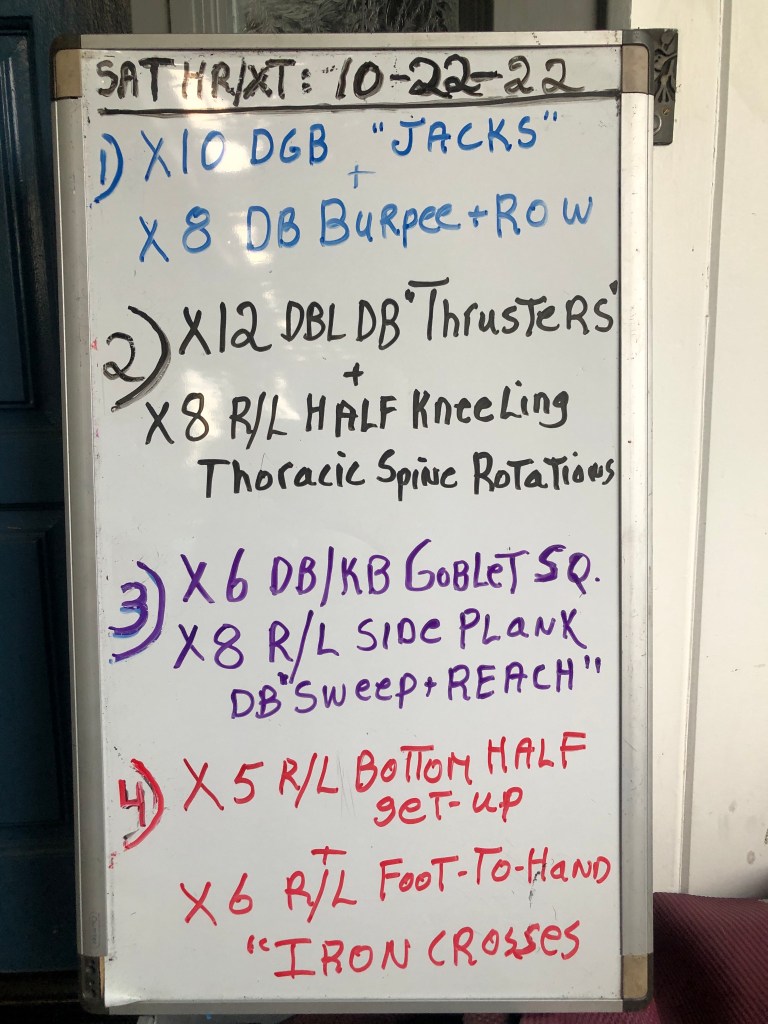 SAT HR/XT: 10-22-22
1) X10 DGB "JACKS"
+
X 8 DB BURpee + ROW
2) X12 DBL DB "ThRusTeRS"
+
X 8 R/L HALF KneeLing
Thoracic Spine RoTaTions
3) X 6 DB/KB GoBLeT SQ.
X8 R/L SIDE PLANK
DB "Sweep + REACH"
4) X 5 R/L BoTTom HALF
geT-up
+
X 6 R/L FOOT-TO-HAND
"IRON CROSSES